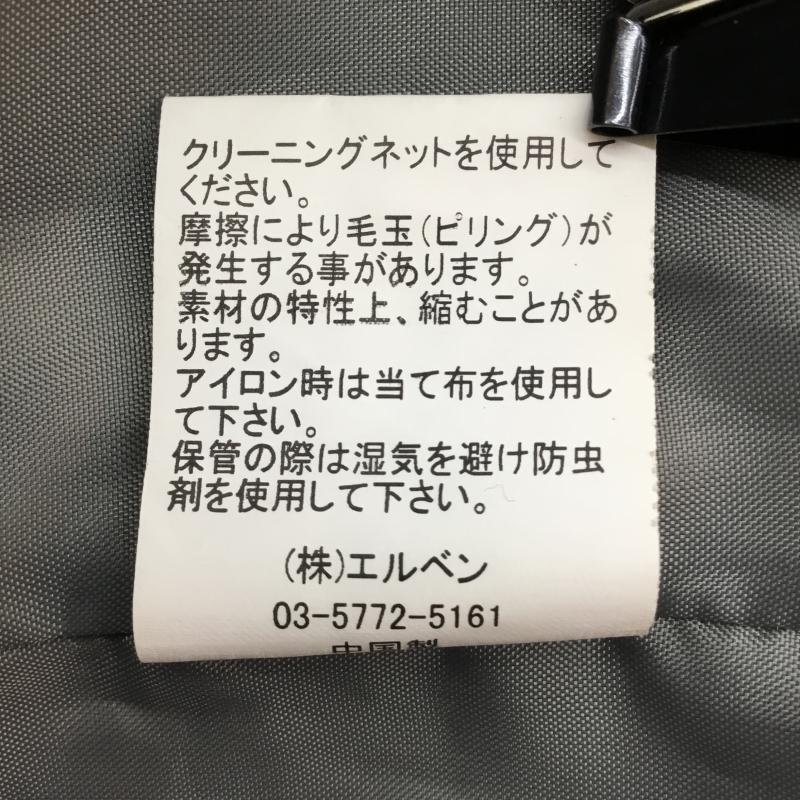 クリーニングネットを使用して
ください。
摩擦により毛玉(ピリング)が
発生する事があります。
素材の特性上、縮むことがあ
ります。
アイロン時は当て布を使用し
て下さい。
保管の際は湿気を避け防虫
剤を使用して下さい。
(株)エルベン
03-5772-5161
中国製